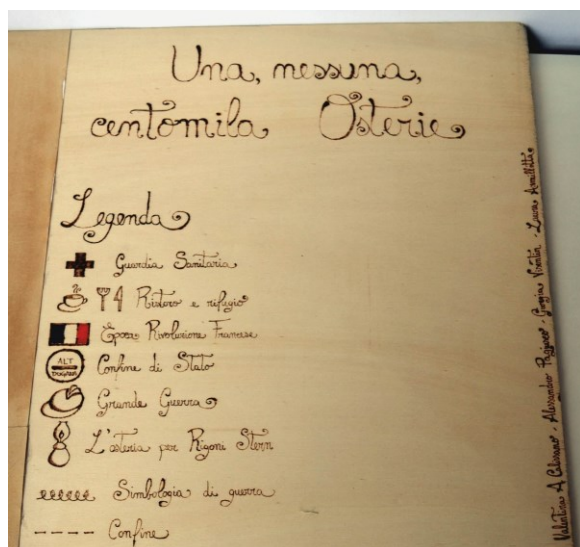 Una, nessuna,
centomila Osterie
Legenda
Guardia Sanitaria
Ristoro e rifugio
Epoca Rivoluzione Francese
ALT
Confine di Stato
Grande Guerra
L'osteria per Rigoni Stern
Simbologia di guerra
Confine
Valentina A. - Alessandro - Giorgia - Laura